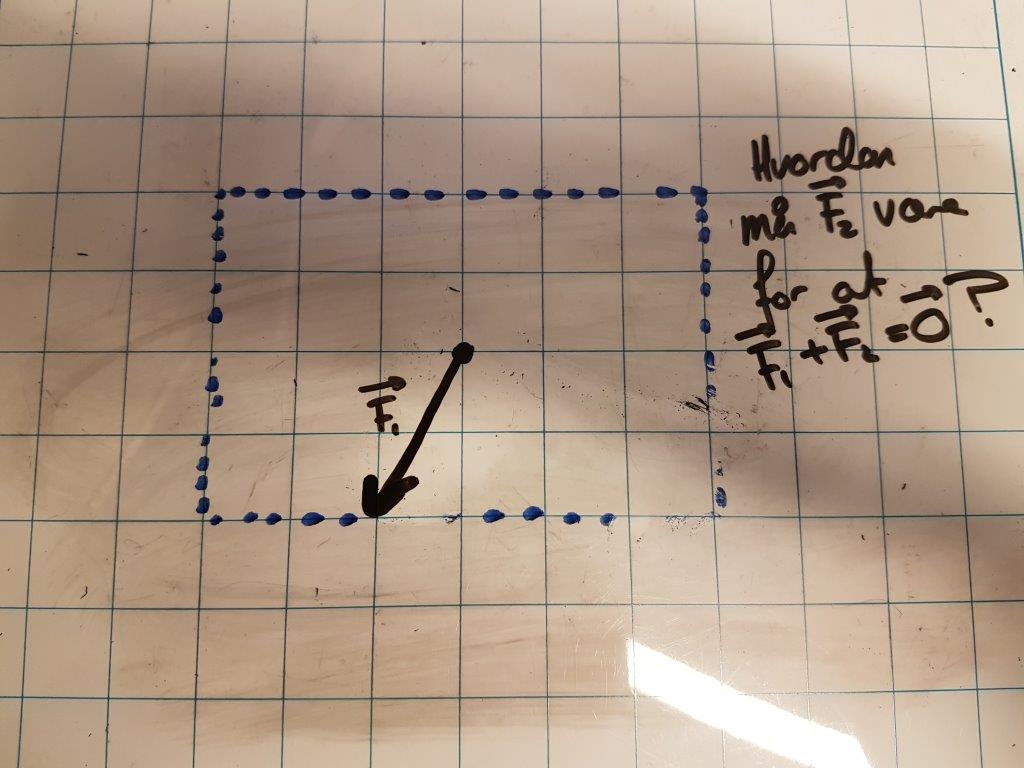 F₁
Hvordan
må F₂ være
for at
F₁ + F₂ = 0 ?